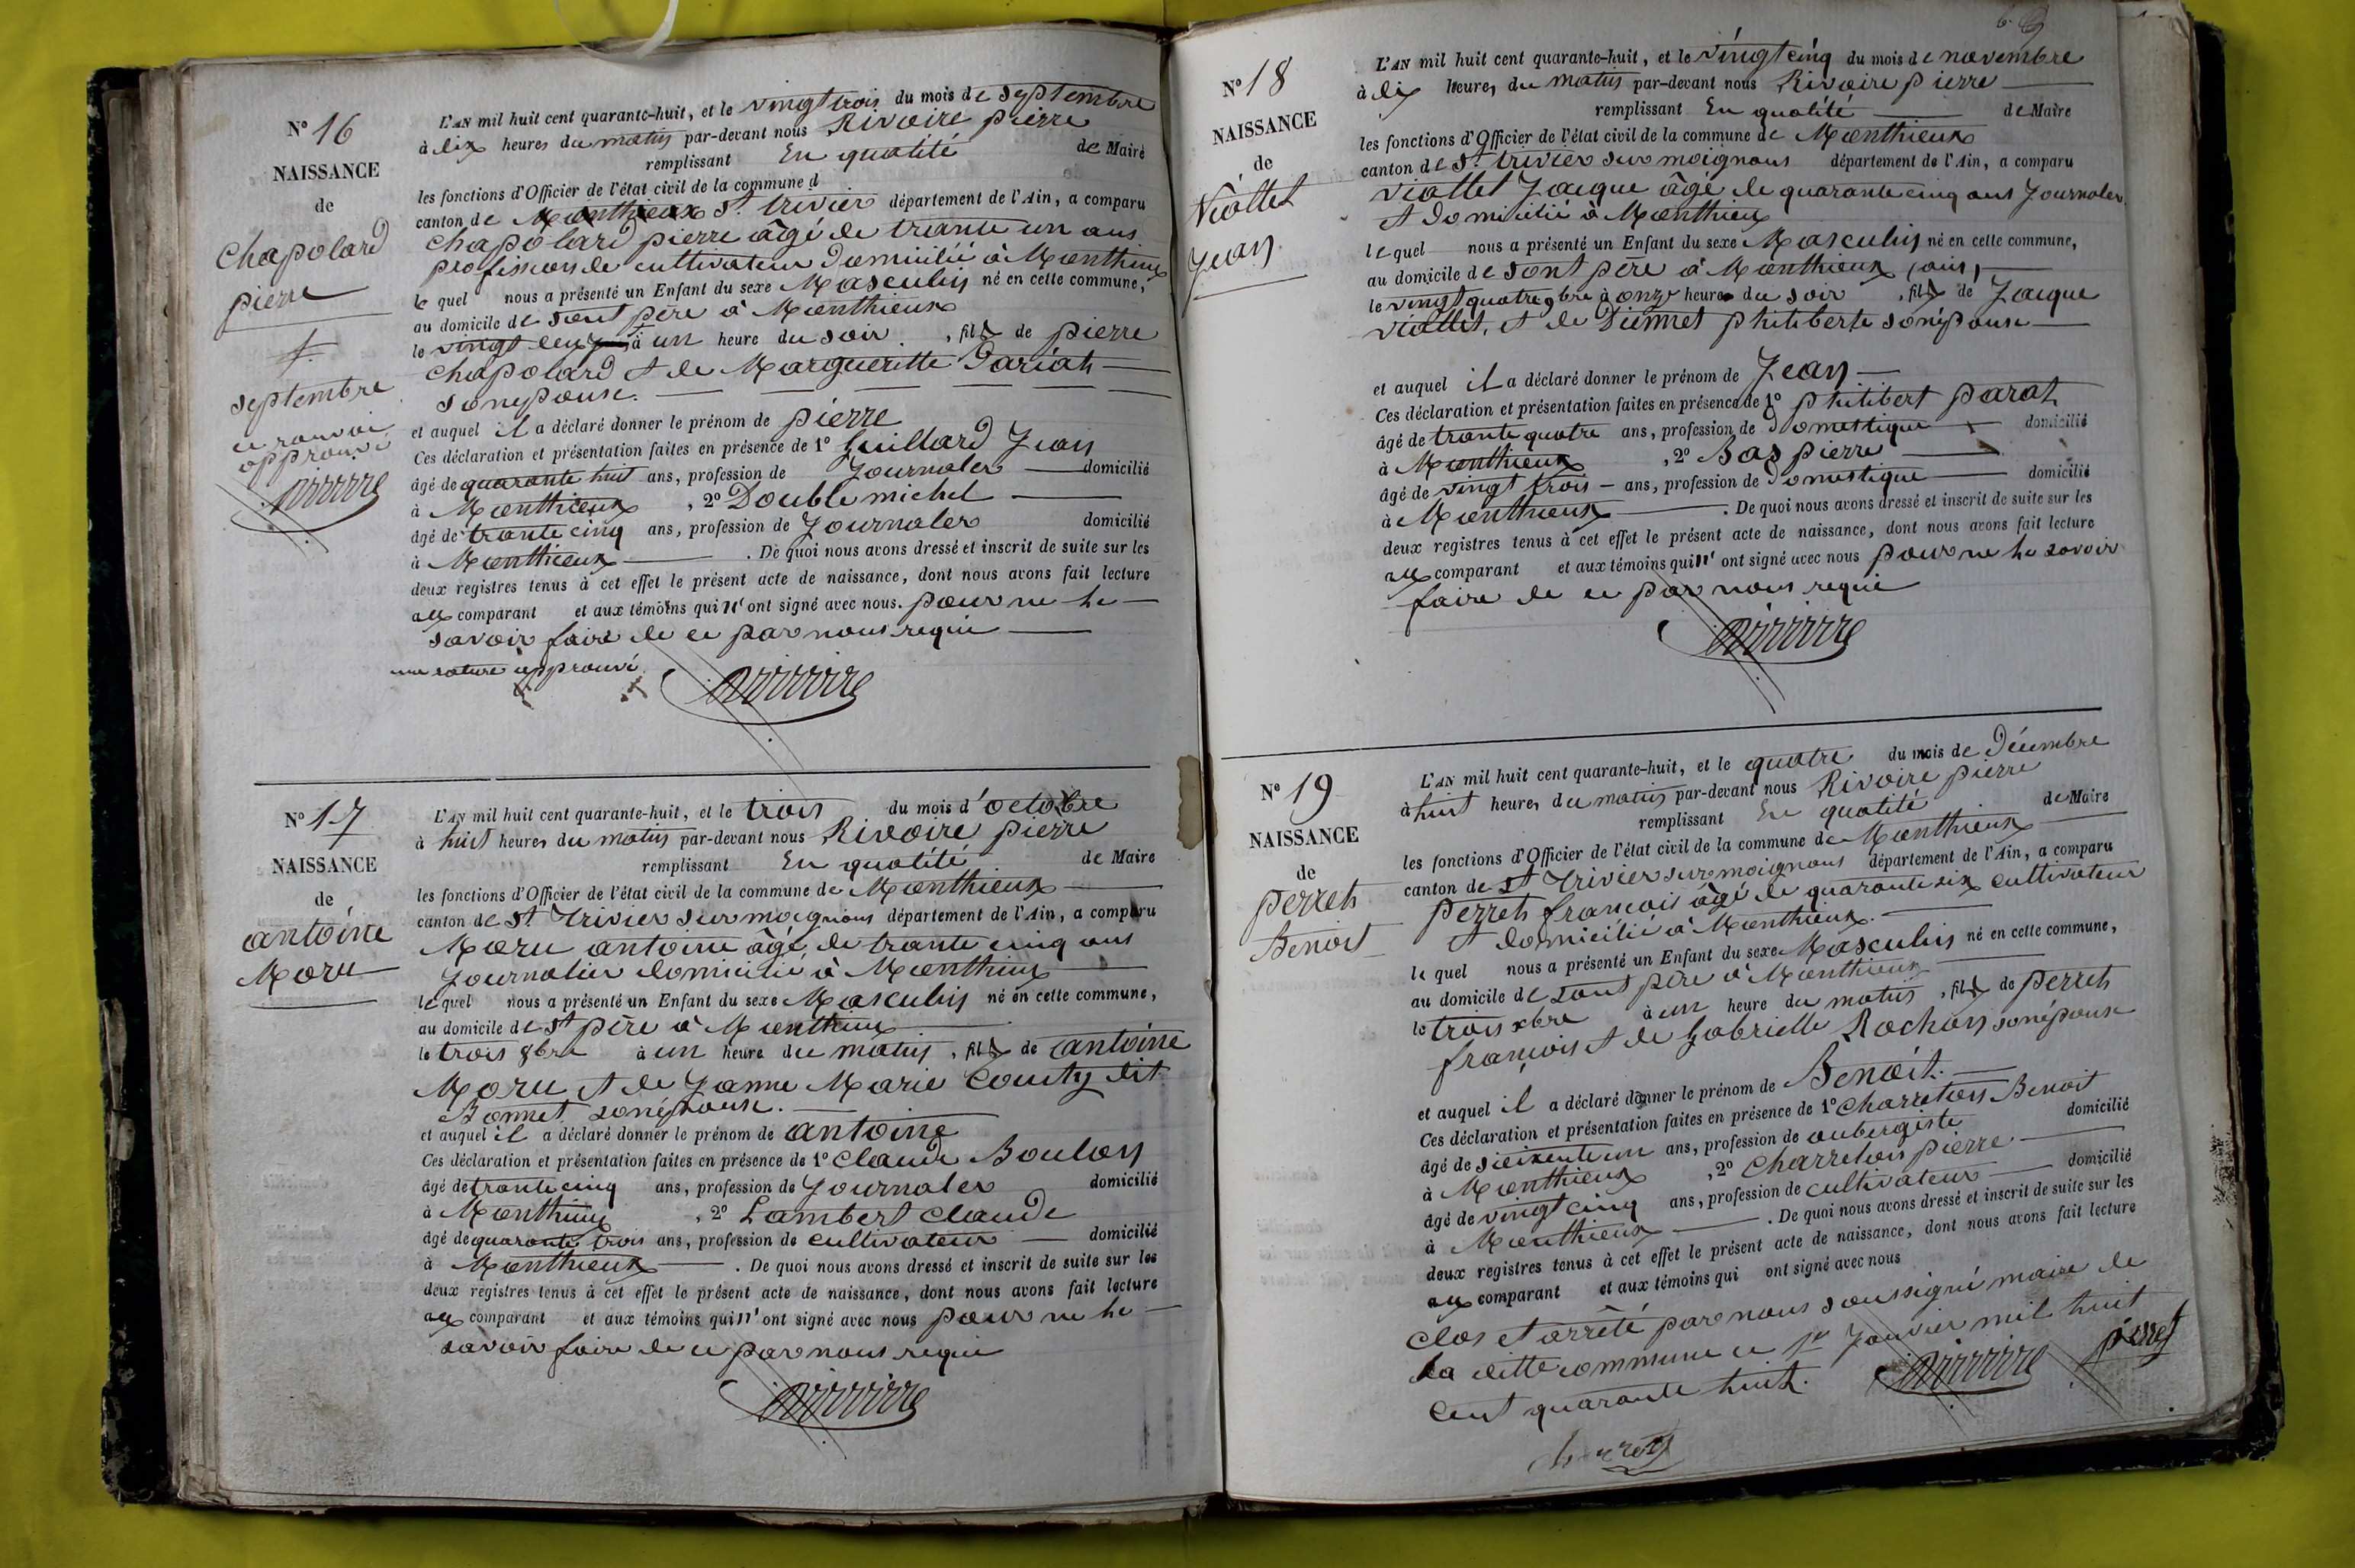 N° 16
NAISSANCE
de
Chapolard
pierre
septembre
ce renvoi
approuvé
L'AN mil huit cent quarante-huit, et le vingt trois du mois de septembre
à dix heures du matin par-devant nous Rivoire pierre
remplissant En qualité de Maire
les fonctions d'Officier de l'état civil de la commune d
canton de Monthieux St. trivier département de l'Ain, a comparu
Chapolard pierre âgé de trante un ans
profession de cultivateur domicilié à Monthieux
le quel nous a présenté un Enfant du sexe Masculin né en cette commune,
au domicile de sont père à Monthieux
le vingt deux à un heure du soir, fils de pierre
Chapolard et de Margueritte Dariat
son épouse.
et auquel il a déclaré donner le prénom de pierre
Ces déclaration et présentation faites en présence de 1° Guillard Jean
âgé de quarante huit ans, profession de Journaler domicilié
à Monthieux, 2° Double michel
âgé de trante cinq ans, profession de Journaler domicilié
à Monthieux. De quoi nous avons dressé et inscrit de suite sur les
deux registres tenus à cet effet le présent acte de naissance, dont nous avons fait lecture
aux comparant et aux témoins qui n'ont signé avec nous. pour ne le
savoir faire de ce par nous requi
une rature approuvé
N° 17
NAISSANCE
de
antoine
Moru
L'AN mil huit cent quarante-huit, et le trois du mois d'octobre
à huit heures du matin par-devant nous Rivoire pierre
remplissant En qualité de Maire
les fonctions d'Officier de l'état civil de la commune de Monthieux
canton de St. trivier sur moignans département de l'Ain, a comparu
Moru antoine âgé de trante cinq ans
Journalier domicilié à Monthieux
le quel nous a présenté un Enfant du sexe Masculin né en cette commune,
au domicile de st père à Monthieux
le trois 8bre à un heure du matin, fils de antoine
Moru et de Janne Marie Couty dit
Bonnet son épouse.
et auquel il a déclaré donner le prénom de antoine
Ces déclaration et présentation faites en présence de 1° Claude Boulon
âgé de trante cinq ans, profession de Journaler domicilié
à Monthieux, 2° Lambert Claude
âgé de quarante trois ans, profession de cultivateur domicilié
à Monthieux. De quoi nous avons dressé et inscrit de suite sur les
deux registres tenus à cet effet le présent acte de naissance, dont nous avons fait lecture
aux comparant et aux témoins qui n'ont signé avec nous pour ne le
savoir faire de ce par nous requi
N° 18
NAISSANCE
de
Viollet
Jean
L'AN mil huit cent quarante-huit, et le vingt cinq du mois de novembre
à dix heures du matin par-devant nous Rivoire pierre
remplissant En qualité de Maire
les fonctions d'Officier de l'état civil de la commune de Monthieux
canton de St. trivier sur moignans département de l'Ain, a comparu
Viollet Jacque âgé de quarante cinq ans Journaler
et domicilié à Monthieux
le quel nous a présenté un Enfant du sexe Masculin né en cette commune,
au domicile de sont père à Monthieux
le vingt quatre 9bre à onze heures du soir, fils de Jacque
viollet, et de Diennet philiberte son épouse
et auquel il a déclaré donner le prénom de Jean
Ces déclaration et présentation faites en présence de 1° philibert parat
âgé de trante quatre ans, profession de domestique domicilié
à Monthieux, 2° Bas pierre
âgé de vingt trois ans, profession de domestique domicilié
à Monthieux. De quoi nous avons dressé et inscrit de suite sur les
deux registres tenus à cet effet le présent acte de naissance, dont nous avons fait lecture
aux comparant et aux témoins qui n'ont signé avec nous pour ne le savoir
faire de ce par nous requi
N° 19
NAISSANCE
de
perret
Benoit
L'AN mil huit cent quarante-huit, et le quatre du mois de Décembre
à huit heures du matin par-devant nous Rivoire pierre
remplissant En qualité de Maire
les fonctions d'Officier de l'état civil de la commune de Monthieux
canton de St trivier sur moignans département de l'Ain, a comparu
perret francois âgé de quarante six cultivateur
et domicilié à Monthieux.
le quel nous a présenté un Enfant du sexe Masculin né en cette commune,
au domicile de sont père à Monthieux
le trois xbre à un heure du matin, fils de perret
françois et de Gabrielle Rochon son épouse
et auquel il a déclaré donner le prénom de Benoit.
Ces déclaration et présentation faites en présence de 1° Charreton Benoit
âgé de soixente un ans, profession de aubergiste domicilié
à Monthieux, 2° Charreton pierre
âgé de vingt cinq ans, profession de cultivateur domicilié
à Monthieux. De quoi nous avons dressé et inscrit de suite sur les
deux registres tenus à cet effet le présent acte de naissance, dont nous avons fait lecture
aux comparant et aux témoins qui ont signé avec nous
Clos et arrêté par nous soussigné maire de
la ditte commune ce 1er Janvier mil huit
cent quarante huit.
perret